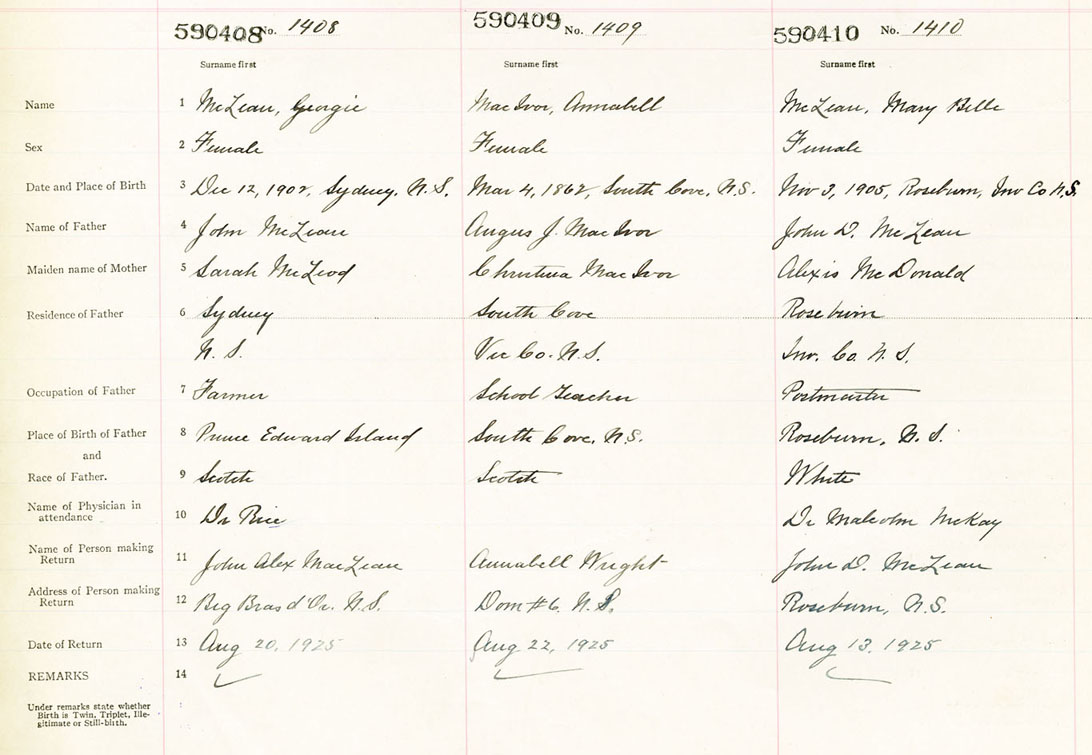 590408 No. 1408 590409 No. 1409 590410 No. 1410
Surname first Surname first Surname first
Name 1 McLean, Georgie MacIvor, Annabell McLean, Mary Belle
Sex 2 Female Female Female
Date and Place of Birth 3 Dec 12, 1902, Sydney, N.S. Mar 4, 1862, South Cove, N.S. Nov 3, 1905, Roseburn, Inv Co N.S.
Name of Father 4 John McLean Angus J. MacIvor John D. McLean
Maiden name of Mother 5 Sarah McLeod Christina MacIvor Alexis McDonald
Residence of Father 6 Sydney South Cove Roseburn
N. S. Vic Co. N.S. Inv. Co. N. S.
Occupation of Father 7 Farmer School Teacher Postmaster
Place of Birth of Father 8 Prince Edward Island South Cove, N.S. Roseburn, N. S.
and
Race of Father. 9 Scotch Scotch White
Name of Physician in
attendance 10 Dr Rice Dr Malcolm McKay
Name of Person making
Return 11 John Alex MacLean Annabell Wright John D. McLean
Address of Person making
Return 12 Big Bras d'Or. N.S. Dom #6. N.S. Roseburn, N.S.
Date of Return 13 Aug 20, 1925 Aug 22, 1925 Aug 13, 1925
REMARKS 14
Under remarks state whether
Birth is Twin, Triplet, Ille-
gitimate or Still-birth.